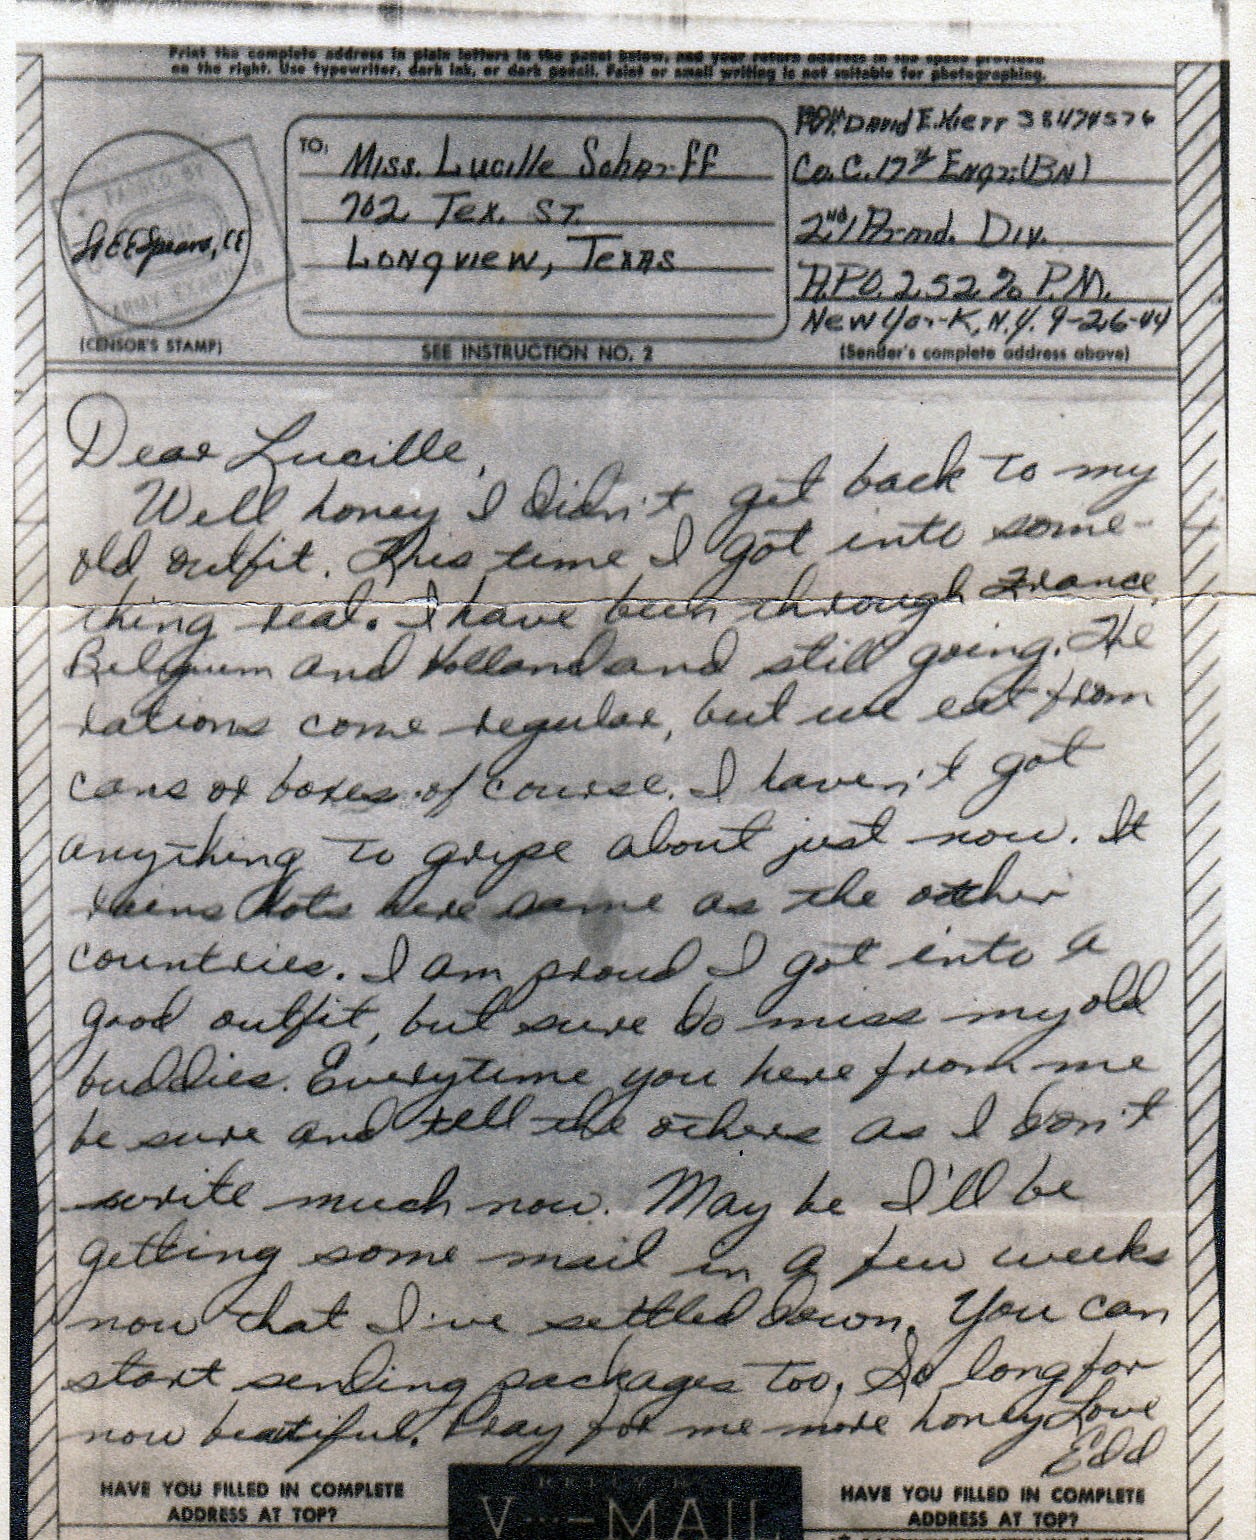 Print the complete address in plain letters in the panel below, and your return address in the space provided
on the right. Use typewriter, dark ink, or dark pencil. Faint or small writing is not suitable for photographing.
PASSED BY
ARMY EXAMINER
(CENSOR'S STAMP)
TO:
Miss. Lucille Scharff
702 Tex. St.
Longview, Texas
SEE INSTRUCTION NO. 2
FROM
Pvt. David E. Kierr 38474576
Co. C. 17th Engr. (BN)
2nd Armd. Div.
A.P.O. 252 % P.M.
New York, N.Y. 9-26-44
(Sender's complete address above)
Dear Lucille,
Well honey I didn't get back to my
old outfit. This time I got into some-
thing real. I have been through France,
Belgium and Holland and still going. The
rations come regular, but we eat from
cans or boxes of course. I haven't got
anything to gripe about just now. It
rains lots here same as the other
countries. I am proud I got into a
good outfit, but sure do miss my old
buddies. Everytime you here from me
be sure and tell the others as I don't
write much now. May be I'll be
getting some mail in a few weeks
now that I've settled down. You can
start sending packages too. So long for
now beatiful. Pray for me more honey Love
Edd
HAVE YOU FILLED IN COMPLETE
ADDRESS AT TOP?
V···—MAIL
HAVE YOU FILLED IN COMPLETE
ADDRESS AT TOP?